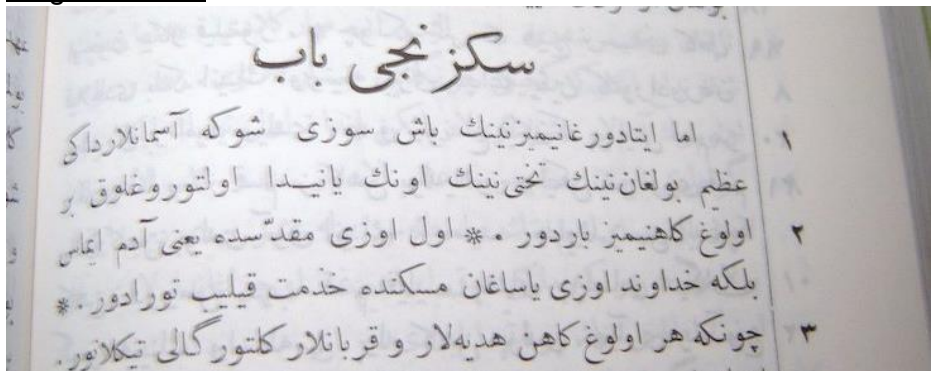 سكزنجى باب
١ اما ايتادورغانيميزنينك باش سوزى شوكه آسمانلارداكى
عظيم بولغاننينك تختىنينك اونك يانيدا اولتوروغلوق بر
٢ اولوغ كاهنيميز باردور . * اول اوزى مقدّسده يعنى آدم ايماس
بلكه خداوند اوزى ياساغان مسكنده خذمت قيليب تورادور . *
٣ چونكه هر اولوغ كاهن هديهلار و قربانلار كلتورگالى تيكلانور .